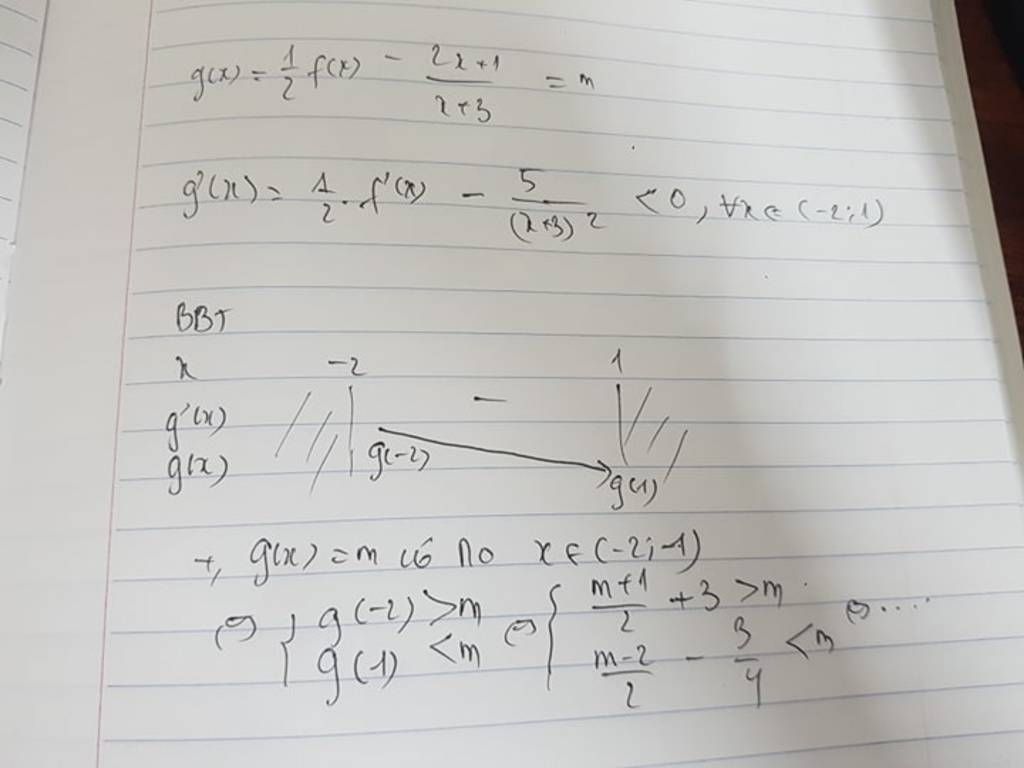 g(x) = 1/2 f(x) - (2x+1)/(x+3) = m
g'(x) = 1/2 . f'(x) - 5/(x+3)² < 0, ∀x ∈ (-2;1)
BBT
x -2 1
g'(x) -
g(x) g(-2) g(1)
+, g(x) = m có no x ∈ (-2;-1)
⇔ { g(-2) > m ⇔ { (m+1)/2 + 3 > m ⇔ ....
g(1) < m (m-2)/2 - 3/4 < m